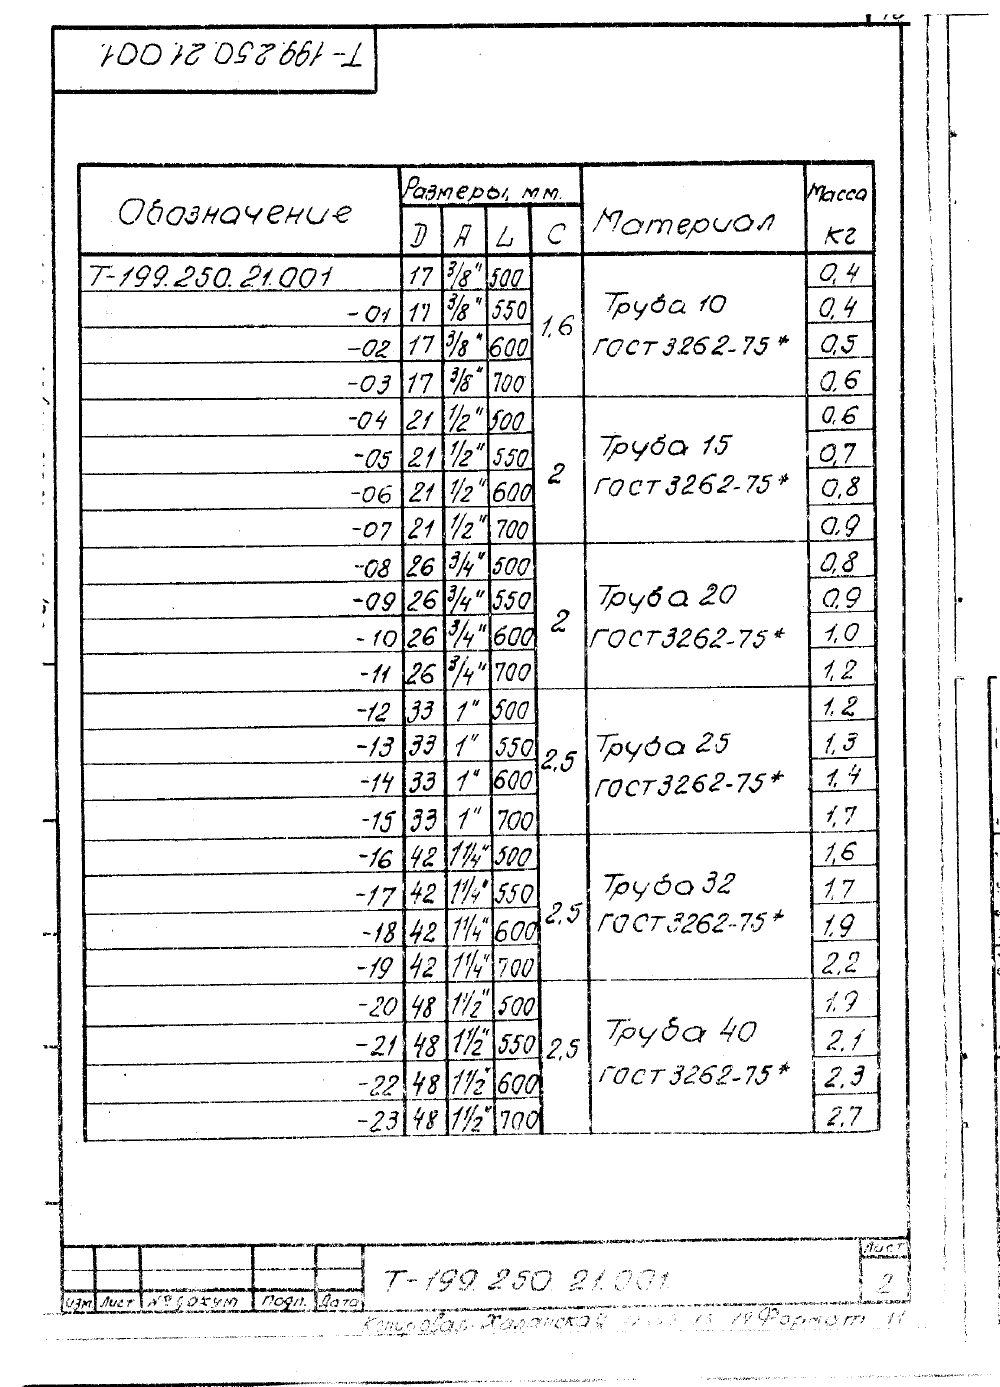 Т-199.250.21.001.
Обозначение Размеры, мм. Материал Масса кг
D A L C
Т-199.250.21.001 17 3/8" 500 1,6 Труба 10 ГОСТ 3262-75* 0,4
-01 17 3/8" 550 0,4
-02 17 3/8" 600 0,5
-03 17 3/8" 700 0,6
-04 21 1/2" 500 2 Труба 15 ГОСТ 3262-75* 0,6
-05 21 1/2" 550 0,7
-06 21 1/2" 600 0,8
-07 21 1/2" 700 0,9
-08 26 3/4" 500 2 Труба 20 ГОСТ 3262-75* 0,8
-09 26 3/4" 550 0,9
-10 26 3/4" 600 1,0
-11 26 3/4" 700 1,2
-12 33 1" 500 2,5 Труба 25 ГОСТ 3262-75* 1,2
-13 33 1" 550 1,3
-14 33 1" 600 1,4
-15 33 1" 700 1,7
-16 42 1 1/4" 500 2,5 Труба 32 ГОСТ 3262-75* 1,6
-17 42 1 1/4" 550 1,7
-18 42 1 1/4" 600 1,9
-19 42 1 1/4" 700 2,2
-20 48 1 1/2" 500 2,5 Труба 40 ГОСТ 3262-75* 1,9
-21 48 1 1/2" 550 2,1
-22 48 1 1/2" 600 2,3
-23 48 1 1/2" 700 2,7
Т-199.250.21.001
Лист
2
Изм Лист № докум Подп. Дата
Копировал Халанская Формат 11